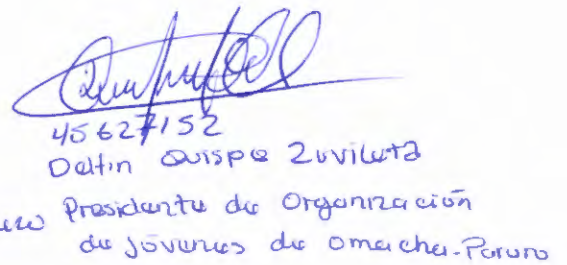 45627152
Delfin Quispe Zuvileta
Presidente de Organización
de Jóvenes de Omacha-Paruro